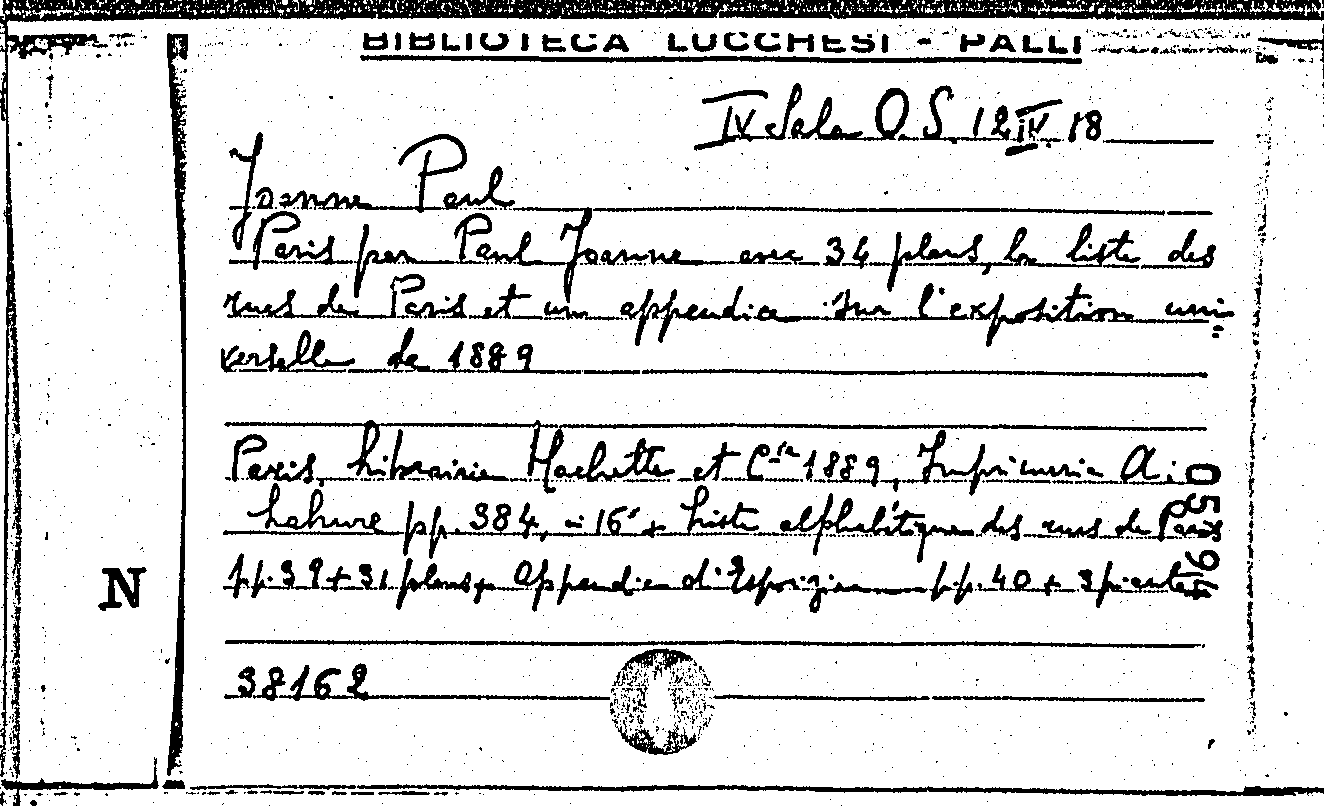 BIBLIOTECA LUCCHESI - PALLI
IV Sala O. S. 12 IV. 18
Joanne Paul
Paris par Paul Joanne avec 34 plans, la liste des
rues de Paris et un appendice sur l'exposition uni=
verselle de 1889
Paris, Librairie Hachette et C.ie 1889, Imprimerie A.
Lahure pp. 384, in 16° + Liste alphabétique des rues de Paris
pp. 39 + 31 plans + Appendice d'Esposizione pp. 40 + 3 piante
N
38162